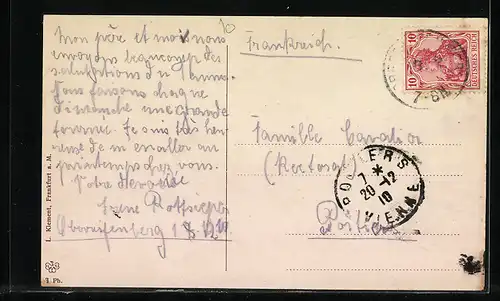 Mon père et moi nous
envoyons beaucoup des
salutations d
Nous faisons chaque
dimanche une grande
Je suis très heu-
reuse de m'en aller au
printemps chez vous.
Votre
Irene
Oberreifenberg
Frankreich.
Famille Cavalier
(Rectorat)
Poitiers
10 10
DEUTSCHES REICH
7-8N
POITIERS
7 *
20-12
10
VIENNE
L. Klement, Frankfurt a. M.
T. Ph.